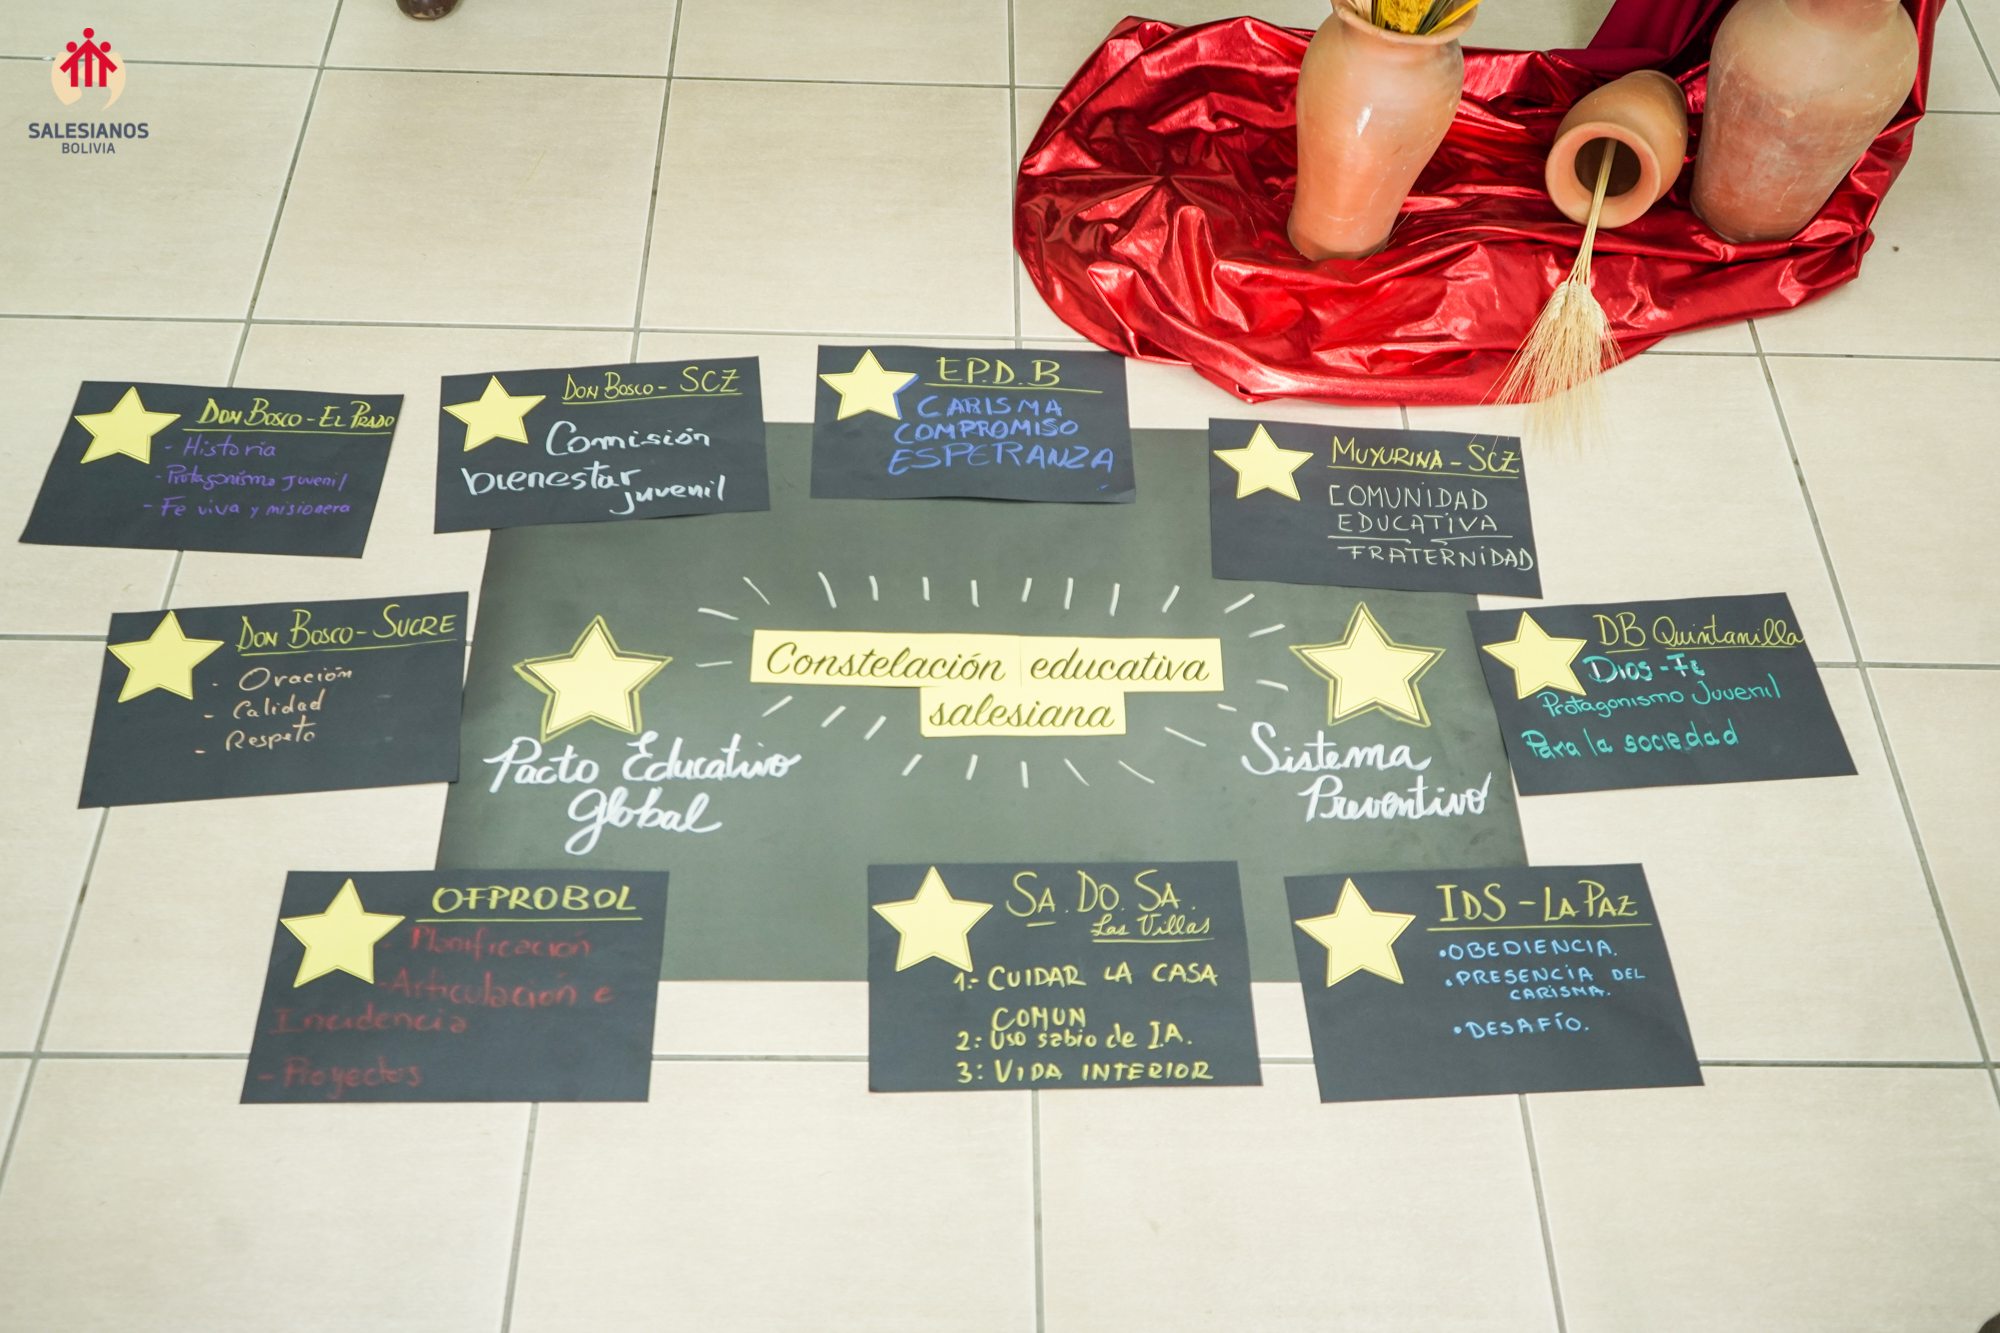 SALESIANOS
BOLIVIA
Don Bosco - El Prado
- Historia
- Protagonismo juvenil
- Fe viva y misionera
Don Bosco - SCZ
Comisión
bienestar
juvenil
E.P.D.B
CARISMA
COMPROMISO
ESPERANZA
MUYURINA - SCZ
COMUNIDAD
EDUCATIVA
FRATERNIDAD
Don Bosco - Sucre
- Oración
- Calidad
- Respeto
Constelación educativa
salesiana
Pacto Educativo
Global
Sistema
Preventivo
DB Quintanilla
Dios - Fe
Protagonismo Juvenil
Para la sociedad
OFPROBOL
- Planificación
- Articulación e
Incidencia
- Proyectos
SA. DO. SA.
Las Villas
1.- CUIDAR LA CASA
COMUN
2: Uso sabio de I.A.
3: VIDA INTERIOR
IDS - LA PAZ
• OBEDIENCIA.
• PRESENCIA DEL
CARISMA.
• DESAFÍO.